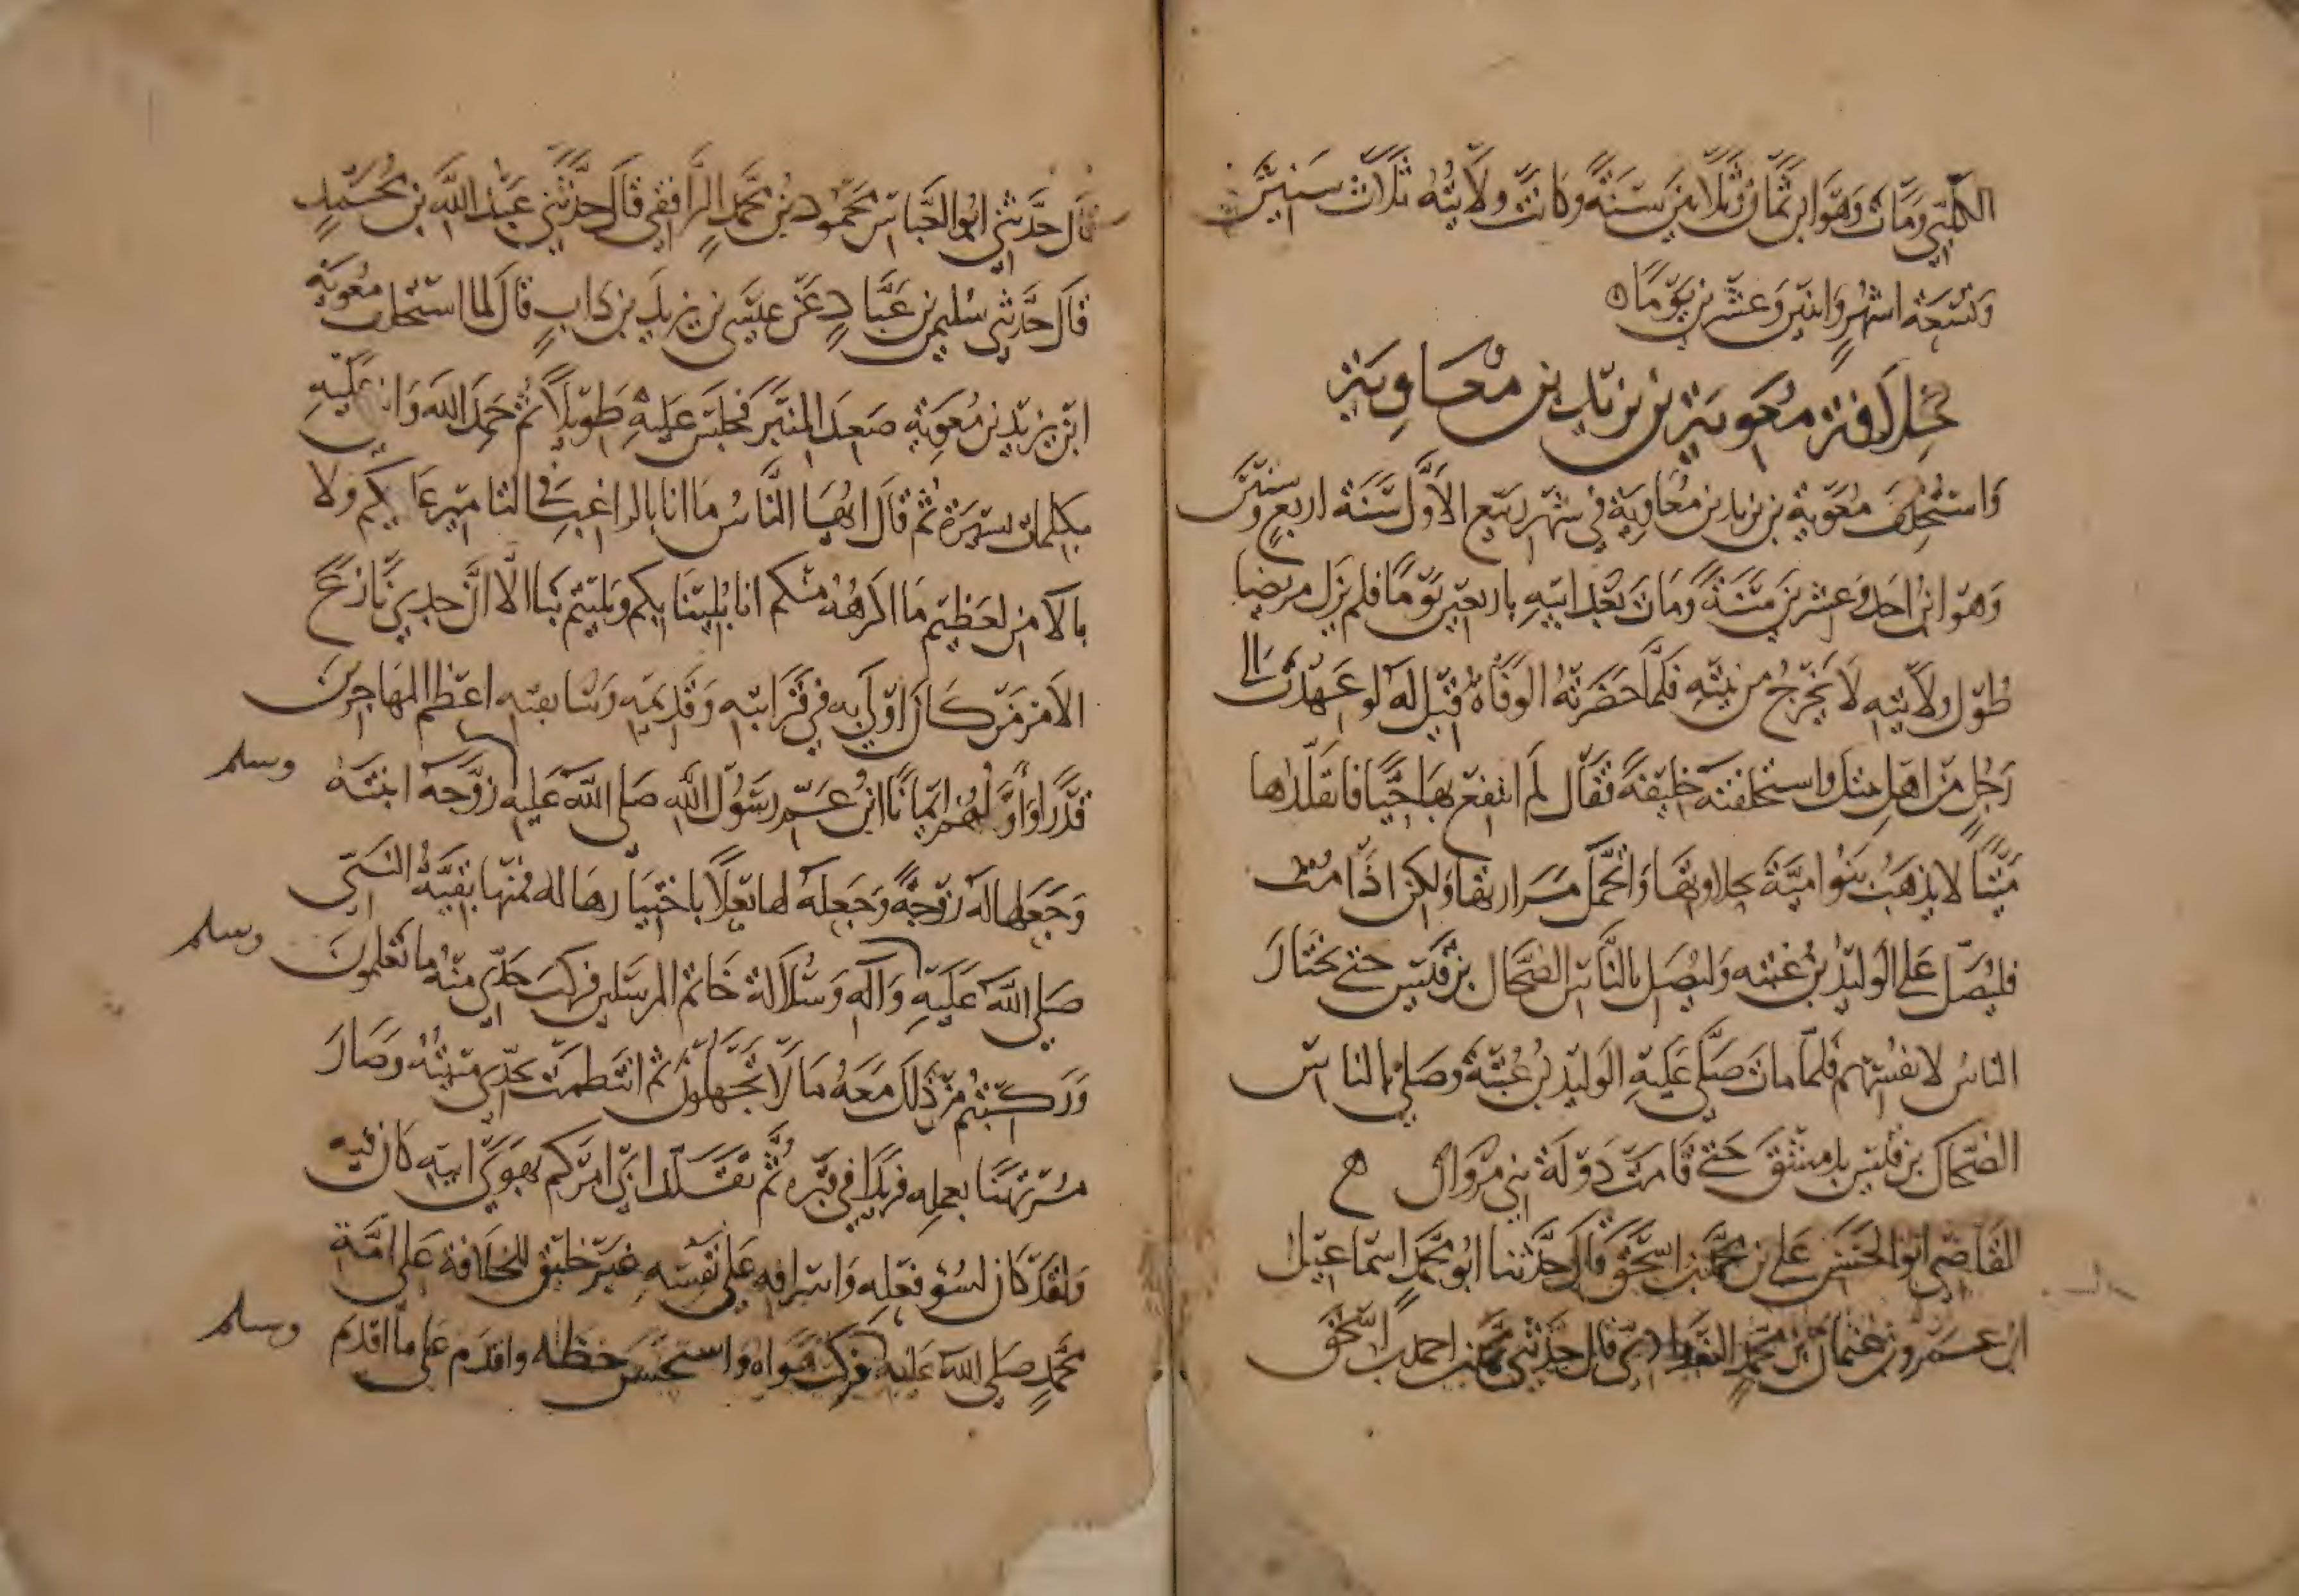 الكلبي ومات وهو ابن ثمان وثلاثين سنة وكانت ولايته ثلاث سنين
وتسعة اشهر واثنين وعشرين يوما
خلافة معوية بن يزيد بن معاوية
واستخلف معوية بن يزيد بن معاوية في شهر ربيع الاول سنة اربع وستين
وهو ابن احد وعشرين سنة ومات بعد ابيه باربعين يوما فلم يزل مريضا
طول ولايته لا يخرج من بيته فلما حضرته الوفاة قيل له لو عهدت الى
رجل من اهل بيتك واستخلفته خليفة فقال لم انتفع بها حيا فاتقلدها
ميتا لا يذهب بنوا امية بحلاوتها واتحمل مرارتها ولكن اذا مت
فليصل علي الوليد بن عتبه وليصل بالناس الضحاك بن قيس حتى يختار
الناس لانفسهم فلما مات صلى عليه الوليد بن عتبة وصلى بالناس
الضحاك بن قيس بدمشق حتى قامت دولة بني مروان
القاضي ابو الحسن علي بن محمد بن اسحق قال حدثنا ابو محمد اسماعيل
ابن عمرو بن عثمان بن محمد البغدادي قال حدثني محمد بن احمد بن اسحق
قال حدثني ابو العباس محمود بن محمد الرافقي قال حدثني عبد الله بن محمد
قال حدثني سليم بن عباد عن عيسى بن يزيد بن داب قال لما استخلف معوية
ابن يزيد بن معوية صعد المنبر فجلس عليه طويلا ثم حمد الله واثنى عليه
بكلمات يسيرة ثم قال ايها الناس ما انا بالراغب في التامير عليكم ولا
بالامن لعظيم ما اكرهه منكم انا بلينا بكم وبليتم بنا الا ان جدي نازع
الامر من كان اولى به في قرابته وقديمه وسابقته اعظم المهاجرين
قدرا واولهم ايمانا ابن عم رسول الله صلى الله عليه وسلم زوجه ابنته
وجعلها له زوجة وجعله لها بعلا باختيارها له فمنها بقية النبي
صلى الله عليه وسلم وآله وسلالة خاتم المرسلين فركب جدي منه ما تعلمون
وركبتم من ذلك معه ما لا تجهلون ثم انتظمت جدي منيته وصار
مرتهنا بعمله فريدا في قبره ثم تقلد ابي امركم بهوى ابيه كان فيه
ولقد كان لسوء فعله واسرافه على نفسه غير خليق للخلافة على امة
محمد صلى الله عليه وسلم فركب هواه واستحسن خطاه واقدم على ما اقدم